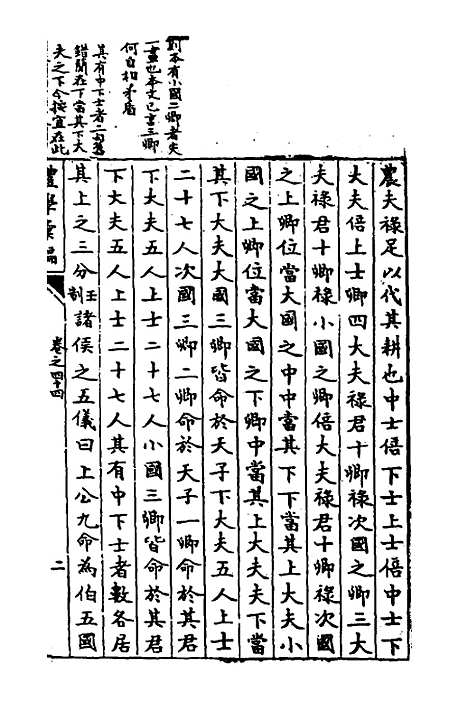 農夫祿足以代其耕也中士倍下士上士倍中士下
大夫倍上士卿四大夫祿君十卿祿次國之卿三大
夫祿君十卿祿小國之卿倍大夫祿君十卿祿次國
之上卿位當大國之中中當其下下當其上大夫小
國之上卿位當大國之下卿中當其上大夫夫下當
其下大夫大國三卿皆命於天子下大夫五人上士
二十七人次國三卿二卿命於天子一卿命於其君
下大夫五人上士二十七人小國三卿皆命於其君
下大夫五人上士二十七人其有中下士者數各居
其上之三分王制諸侯之五儀曰上公九命為伯五國
則本有小國二卿者失
一畫也本文已言三卿
何自相矛盾
其有中下士者二句舊
錯簡在下當其下大
夫之下今按宜在此
禮學彙編
卷之四十四
二